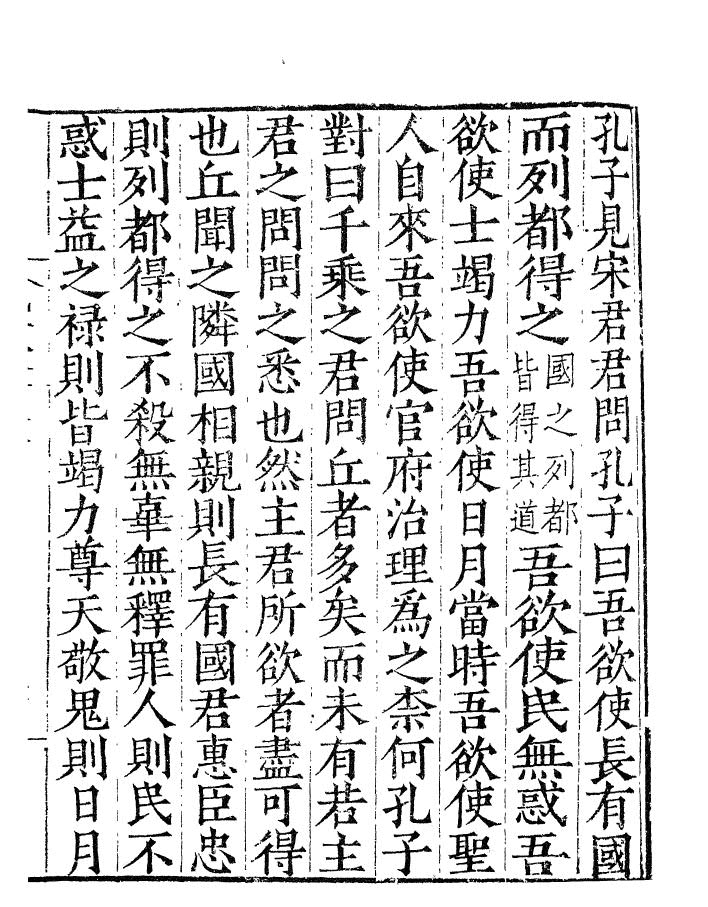 孔子見宋君君問孔子曰吾欲使長有國
而列都得之國之列都皆得其道吾欲使民無惑吾
欲使士竭力吾欲使日月當時吾欲使聖
人自來吾欲使官府治理爲之柰何孔子
對曰千乘之君問丘者多矣而未有若主
君之問問之悉也然主君所欲者盡可得
也丘聞之隣國相親則長有國君惠臣忠
則列都得之不殺無辜無釋罪人則民不
惑士益之禄則皆竭力尊天敬鬼則日月